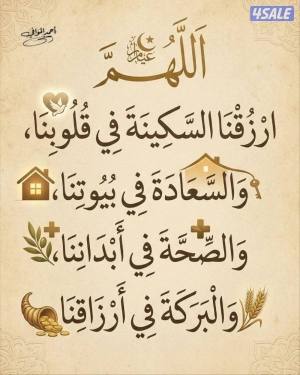 4SALE
أحمد الموافي
اللَّهُمَّ
ارْزُقْنَا السَّكِينَةَ فِي قُلُوبِنَا،
وَالسَّعَادَةَ فِي بُيُوتِنَا،
وَالصِّحَّةَ فِي أَبْدَانِنَا،
وَالْبَرَكَةَ فِي أَرْزَاقِنَا